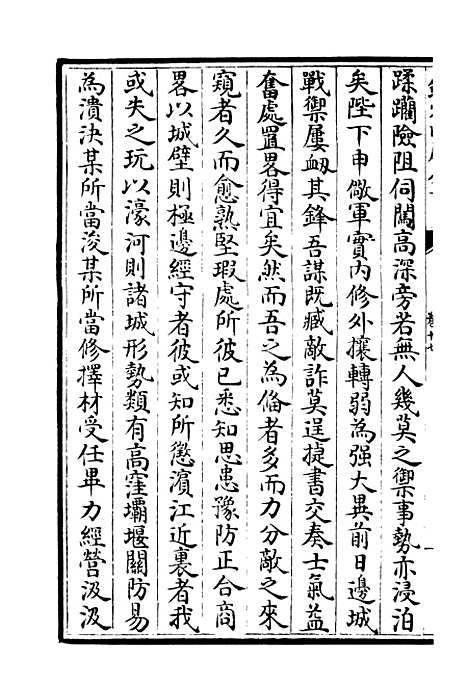 蹂躪險阻伺闖高深旁若無人幾莫之禦事勢亦浸泊
矣陛下申儆軍實内修外攘轉弱為强大異前日邊城
戰禦屢衂其鋒吾謀既臧敵詐莫逞捷書交奏士氣益
奮處置畧得宜矣然而吾之為俻者多而力分敵之來
窺者久而愈熟堅瑕處所彼已悉知思患豫防正合商
畧以城壁則極邊經守者彼或知所懲濵江近裏者我
或失之玩以濠河則諸城形勢類有高窪壩堰關防易
為潰決某所當浚某所當修擇材受任畢力經營汲汲